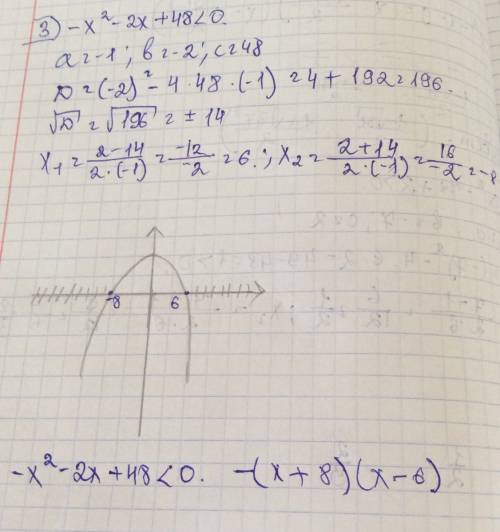 3) -x² - 2x + 48 < 0.
a = -1; в = -2; c = 48
D = (-2)² - 4 · 48 · (-1) = 4 + 192 = 196.
√D = √196 = ± 14
x₁ = (2-14)/(2·(-1)) = -12/-2 = 6.; x₂ = (2+14)/(2·(-1)) = 16/-2 = -8
-8 6
-x² - 2x + 48 < 0. -(x + 8)(x - 6)